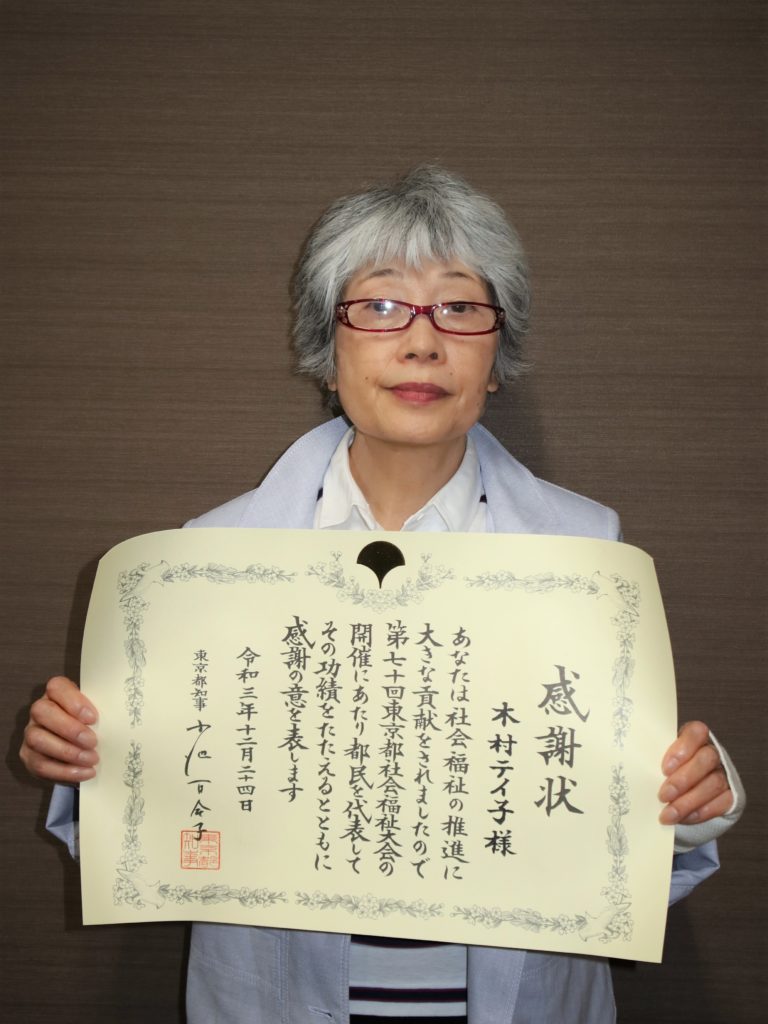 感謝状
木村テイ子様
あなたは社会福祉の推進に
大きな貢献をされましたので
第七十回東京都社会福祉大会の
開催にあたり都民を代表して
その功績をたたえるとともに
感謝の意を表します
令和三年十二月二十四日
東京都知事 小池百合子
東京都
知事